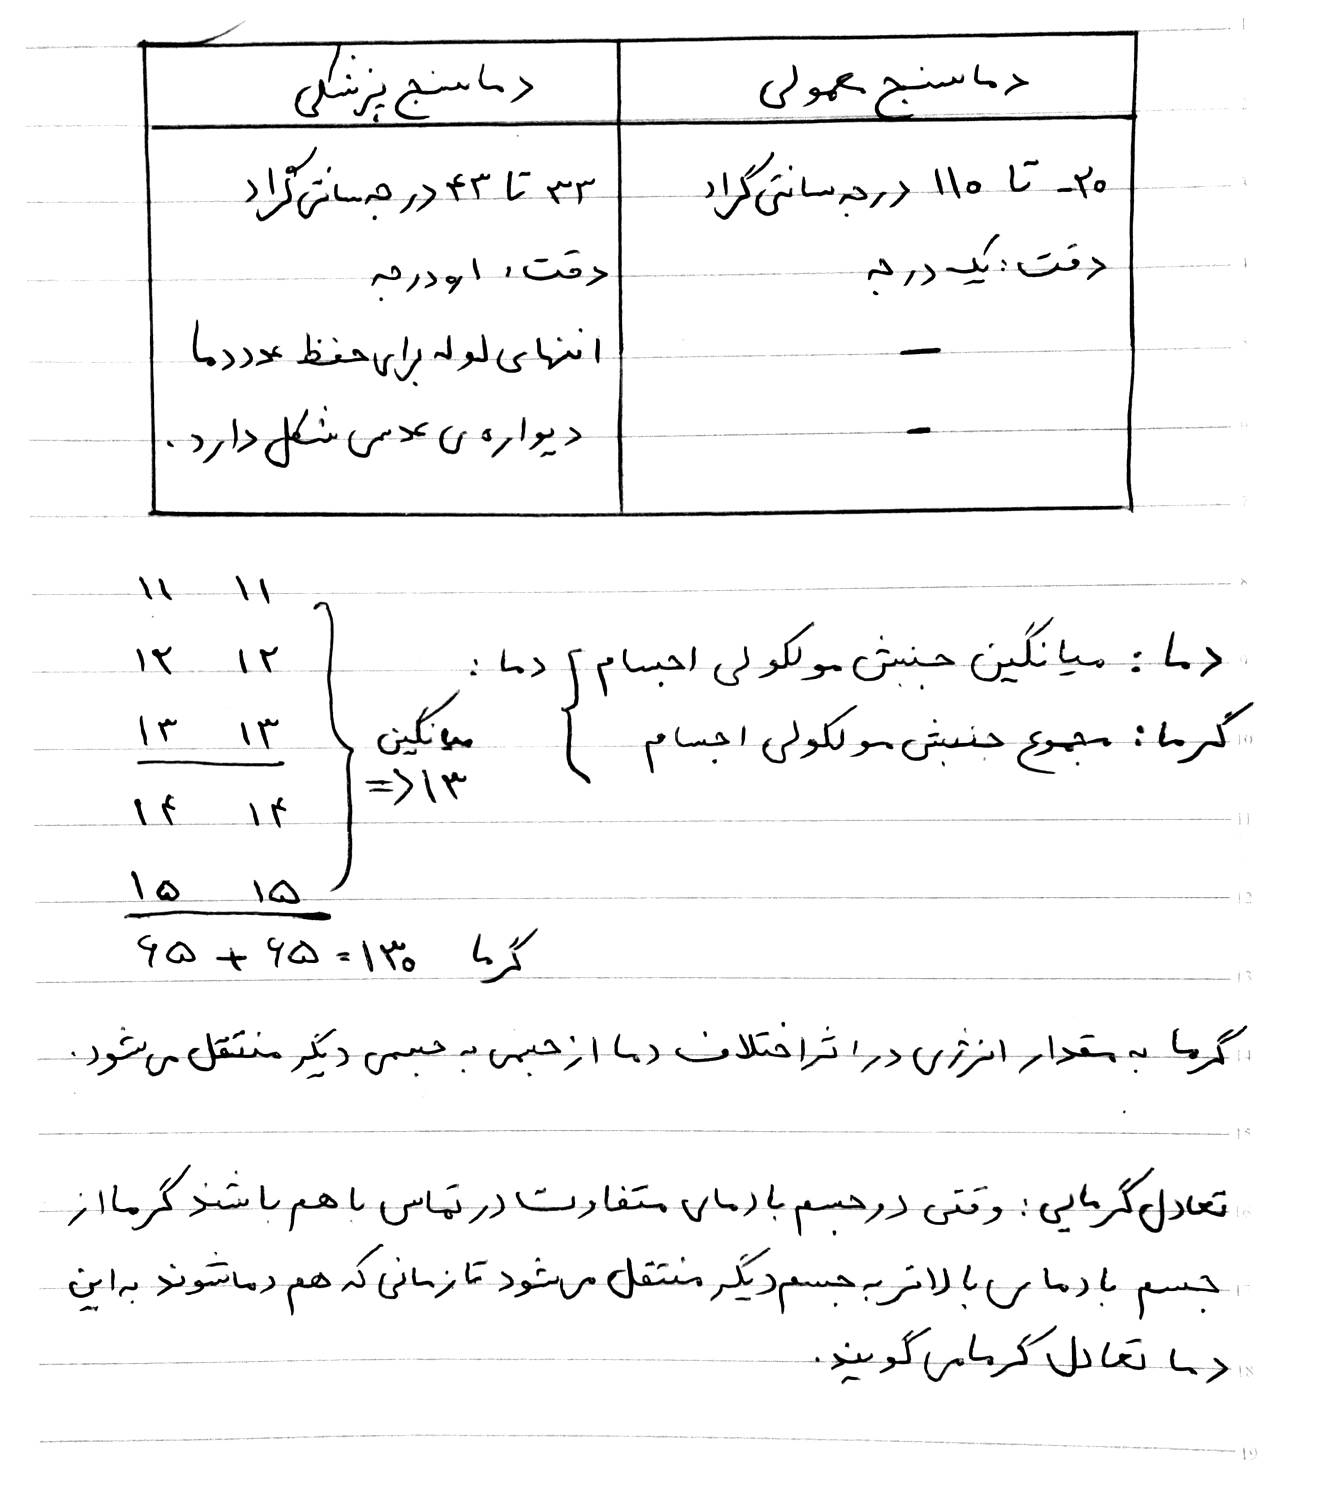 دماسنج معمولی
دماسنج پزشکی
-۲۰ تا ۱۱۰ درجه سانتی گراد
۳۳ تا ۴۳ درجه سانتی گراد
دقت: یک درجه
دقت: ۰٫۱ درجه
انتهای لوله برای حفظ عدد دما
-
دیواره ی عدسی شکل دارد.
-
۱۱ ۱۱
دما: میانگین جنبش مولکولی اجسام } دما:
۱۲ ۱۲
گرما: مجموع جنبش مولکولی اجسام
۱۳ ۱۳
میانگین
=> ۱۳
۱۴ ۱۴
۱۵ ۱۵
۶۵ + ۶۵ = ۱۳۰ گرما
گرما به مقدار انرژی در اثر اختلاف دما از جسمی به جسمی دیگر منتقل می شود.
تعادل گرمایی: وقتی دو جسم با دمای متفاوت در تماس با هم باشند گرما از
جسم با دمای بالاتر به جسم دیگر منتقل می شود تا زمانی که هم دما شوند به این
دما تعادل گرمایی گویند.